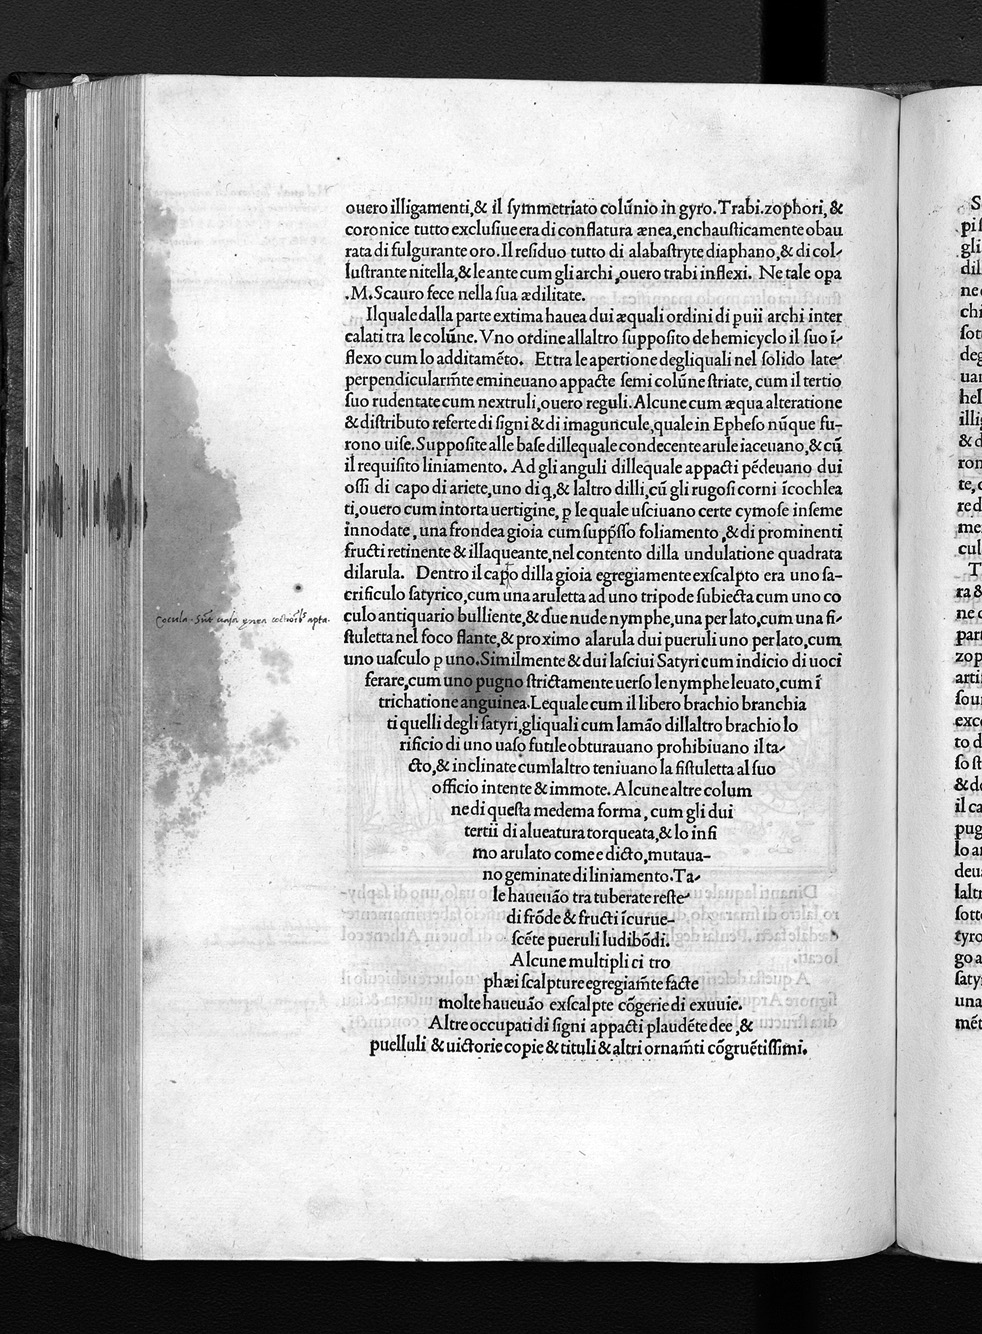 ouero illigamenti,& il ſymmetriato colũnio in gyro. Trabi. zophori, &
coronice tutto excluſiue era di conflatura ænea, enchauſticamente obau
rata di fulgurante oro. Il reſiduo tutto di alabaſtryte diaphano, & di col-
luſtrante nitella, & le ante cum gli archi, ouero trabi inflexi. Ne tale oꝑa
.M. Scauro fece nella ſua ædilitate.
Ilquale dalla parte extima hauea dui æquali ordini di ꝑuii archi inter
calati tra le colũne. Vno ordine allaltro ſuppoſito de hemicyclo il ſuo ĩ-
flexo cum lo additamẽto. Et tra le apertione degliquali nel ſolido late-
perpendicularm̃te emineuano appacte ſemi colũne ſtriate, cum il tertio
ſuo rudentate cum nextruli, ouero reguli. Alcune cum æqua alteratione
& diſtributo referte di ſigni & di imaguncule, quale in Epheſo nũque fu-
rono uiſe. Suppoſite alle baſe dillequale condecente arule iaceuano, & cũ
il requiſito liniamento. Ad gli anguli dillequale appacti pẽdeuano dui
oſſi di capo di ariete, uno di q̃, & laltro dilli, cũ gli rugoſi corni ĩcochlea
ti, ouero cum intorta uertigine, ꝑ le quale uſciuano certe cymoſe inſeme
innodate, una frondea gioia cum ſupp̃ſſo foliamento, & di prominenti
fructi retinente & illaqueante, nel contento dilla undulatione quadrata
dilarula. Dentro il capo dilla gioia egregiamente exſcalpto era uno ſa-
crificulo ſatyrico, cum una aruletta ad uno tripode ſubiecta cum uno co
Cocula. Sũt uaſa ęnea coctiõibꝰ apta.
culo antiquario bulliente, & due nude nymphe, una per lato, cum una fi-
ſtuletta nel foco flante, & proximo alarula dui pueruli uno per lato, cum
uno uaſculo ꝑ uno. Similmente & dui laſciui Satyri cum indicio di uoci
ferare, cum uno pugno ſtrictamente uerſo le nymphe leuato, cum ĩ
trichatione anguinea. Lequale cum il libero brachio branchia
ti quelli degli ſatyri, gliquali cum lamão dillaltro brachio lo
rificio di uno uaſo futile obturauano prohibiuano il ta-
cto, & inclinate cum laltro teniuano la fiſtuletta al ſuo
officio intente & immote. Alcune altre colum
ne di queſta medema forma, cum gli dui
tertii di alueatura torqueata, & lo infi
mo arulato come e dicto, mutaua-
no geminate di liniamento. Ta-
le haueuão tra tuberate reſte-
di frõde & fructi ĩcurue-
ſcẽte pueruli ludibõdi.
Alcune multipli ci tro
phæi ſcalpture egregiam̃te facte
molte haueuão exſcalpte cõgerie di exuuie.
Altre occupati di ſigni appacti plaudẽte dee, &
puelluli & uictorie copie & tituli & altri ornam̃ti cõgruẽtiſſimi.